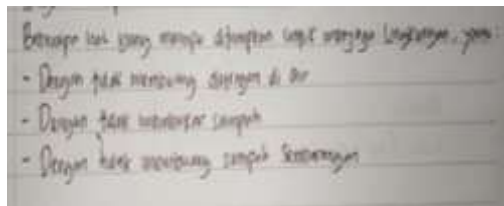 Beberapa hal yang mampu diterapkan untuk menjaga lingkungan, yaitu:
- Dengan tidak membuang di air
- Dengan tidak membakar sampah
- Dengan tidak membuang sampah Sembarangan